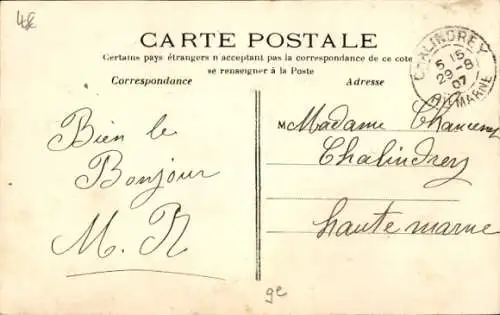 4€
CARTE POSTALE
Certains pays étrangers n'acceptant pas la correspondance de ce côté
se renseigner à la Poste
Correspondance
Adresse
CHALINDREY
5 15
29-8
07
Hte MARNE
Bien le
Bonjour
M. R
M Madame
Chalindrey
haute marne
9e